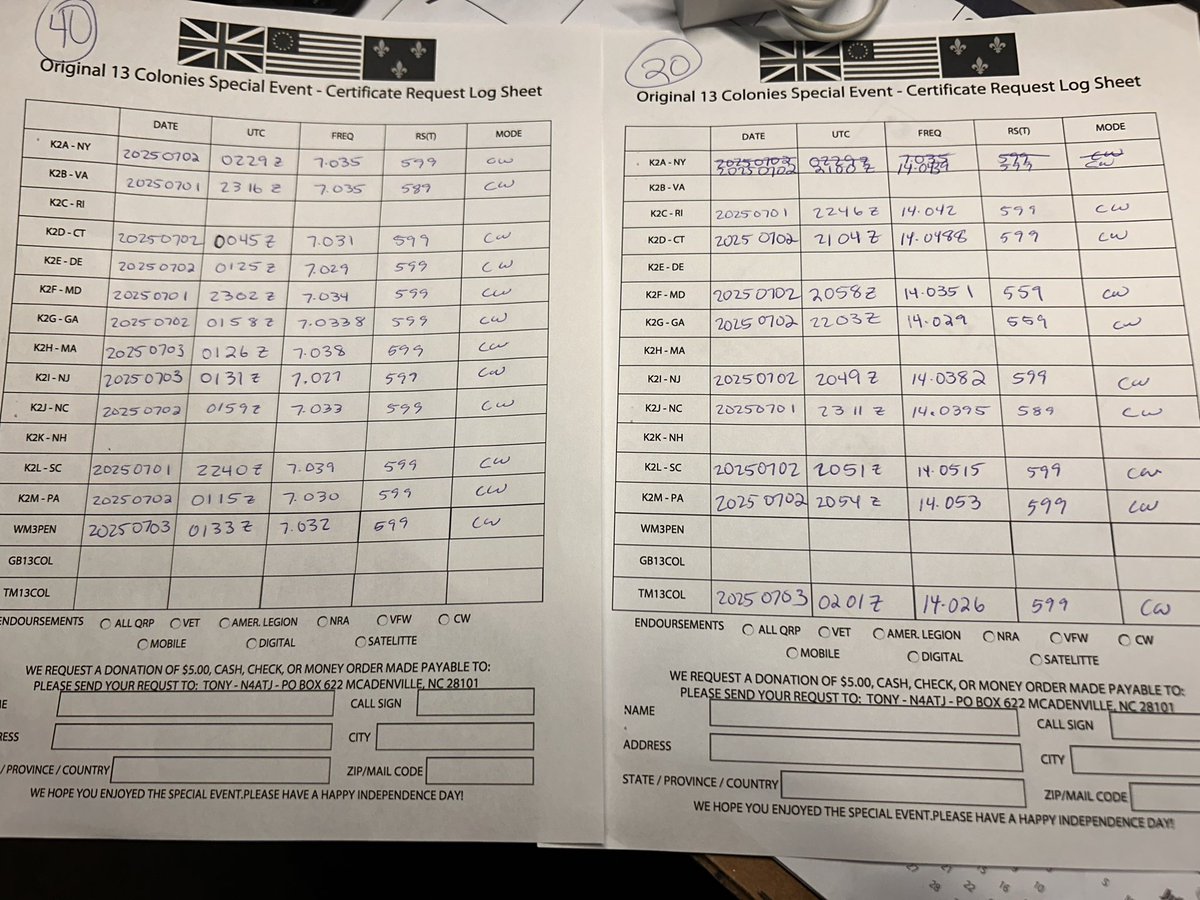 40
Original 13 Colonies Special Event - Certificate Request Log Sheet
DATE UTC FREQ RS(T) MODE
K2A - NY 20250702 0229 Z 7.035 599 CW
K2B - VA 20250701 2316 Z 7.035 589 CW
K2C - RI
K2D - CT 20250702 0045 Z 7.031 599 CW
K2E - DE 20250702 0125 Z 7.029 599 CW
K2F - MD 20250701 2302 Z 7.034 599 CW
K2G - GA 20250702 0158 Z 7.0338 599 CW
K2H - MA 20250703 0126 Z 7.038 599 CW
K2I - NJ 20250703 0131 Z 7.027 599 CW
K2J - NC 20250702 0159 Z 7.033 599 CW
K2K - NH
K2L - SC 20250701 2240 Z 7.039 599 CW
K2M - PA 20250702 0115 Z 7.030 599 CW
WM3PEN 20250703 0133 Z 7.032 599 CW
GB13COL
TM13COL
ENDORSEMENTS ALL QRP VET AMER. LEGION NRA VFW CW
MOBILE DIGITAL SATELITTE
WE REQUEST A DONATION OF $5.00, CASH, CHECK, OR MONEY ORDER MADE PAYABLE TO:
PLEASE SEND YOUR REQUST TO: TONY - N4ATJ - PO BOX 622 MCADENVILLE, NC 28101
ME CALL SIGN
RESS CITY
/ PROVINCE / COUNTRY ZIP/MAIL CODE
WE HOPE YOU ENJOYED THE SPECIAL EVENT.PLEASE HAVE A HAPPY INDEPENDENCE DAY!
20
Original 13 Colonies Special Event - Certificate Request Log Sheet
DATE UTC FREQ RS(T) MODE
K2A - NY 20250703 0229 Z 7.035 599 CW
20250702 2100 Z CW
K2B - VA
K2C - RI 20250701 2246 Z 14.042 599 CW
K2D - CT 20250702 2104 Z 14.0488 599 CW
K2E - DE
K2F - MD 20250702 2058 Z 14.0351 559 CW
K2G - GA 20250702 2203 Z 14.029 559 CW
K2H - MA
K2I - NJ 20250702 2049 Z 14.0382 599 CW
K2J - NC 20250701 2311 Z 14.0395 589 CW
K2K - NH
K2L - SC 20250702 2051 Z 14.0515 599 CW
K2M - PA 20250702 2054 Z 14.053 599 CW
WM3PEN
GB13COL
TM13COL 20250703 0201 Z 14.026 599 CW
ENDORSEMENTS ALL QRP VET AMER. LEGION NRA VFW CW
MOBILE DIGITAL SATELITTE
WE REQUEST A DONATION OF $5.00, CASH, CHECK, OR MONEY ORDER MADE PAYABLE TO:
PLEASE SEND YOUR REQUST TO: TONY - N4ATJ - PO BOX 622 MCADENVILLE, NC 28101
NAME CALL SIGN
ADDRESS CITY
STATE / PROVINCE / COUNTRY ZIP/MAIL CODE
WE HOPE YOU ENJOYED THE SPECIAL EVENT.PLEASE HAVE A HAPPY INDEPENDENCE DAY!